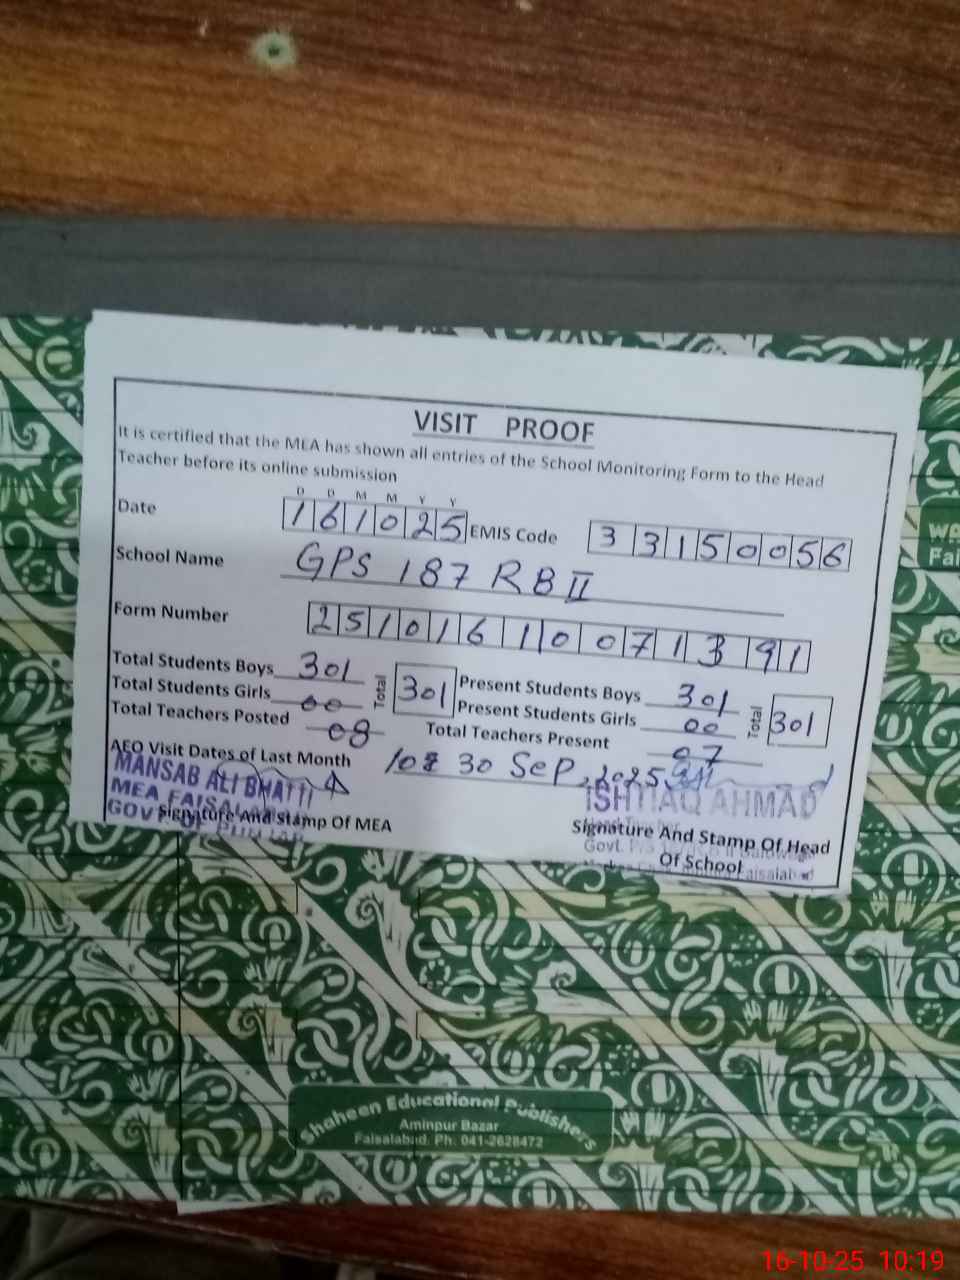 VISIT PROOF
It is certified that the MEA has shown all entries of the School Monitoring Form to the Head
Teacher before its online submission
D D M M Y Y
Date 161025 EMIS Code 33150056
School Name GPS 187 RB II
Form Number 25101610071391
Total Students Boys 301 Total 301 Present Students Boys 301 Total 301
Total Students Girls 00 Present Students Girls 00
Total Teachers Posted 08 Total Teachers Present 07
AEO Visit Dates of Last Month 30 Sep, 2025
MANSAB ALI BHATTI
MEA FAISALABAD
GOVT OF PUNJAB
Signature And Stamp Of MEA
ISHTIAQ AHMAD
Head Teacher
Signature And Stamp Of Head
Govt. P/S
Of School
Faisalabad
WA
Fai
Shaheen Educational Publishers
Aminpur Bazar
Faisalabad. Ph: 041-2628472
16-10-25 10:19